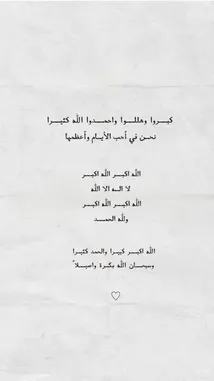 كبروا وهللوا واحمدوا الله كثيرا
نحن في أحب الأيام وأعظمها
الله اكبر الله اكبر
لا اله الا الله
الله اكبر الله اكبر
ولله الحمد
الله اكبر كبيرا والحمد كثيرا
وسبحان الله بكرة واصيلاً